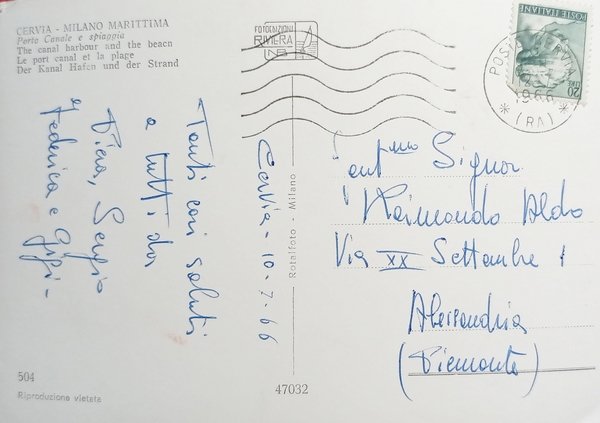 CERVIA - MILANO MARITTIMA
Porto Canale e spiaggia
The canal harbour and the beach
Le port canal et la plage
Der Kanal Hafen und der Strand
FOTOEDIZIONI
RIVIERA
POSTE ITALIANE
20
1966
(RA)
Cervia - 10-7-66
Tanti cari saluti
a tutti da
Piera, Sergio
Federica e Gigi-
Rotalfoto - Milano
Signor
Raimondo Aldo
Via XX Settembre 1
Alessandria
(Piemonte)
504
Riproduzione vietata
47032